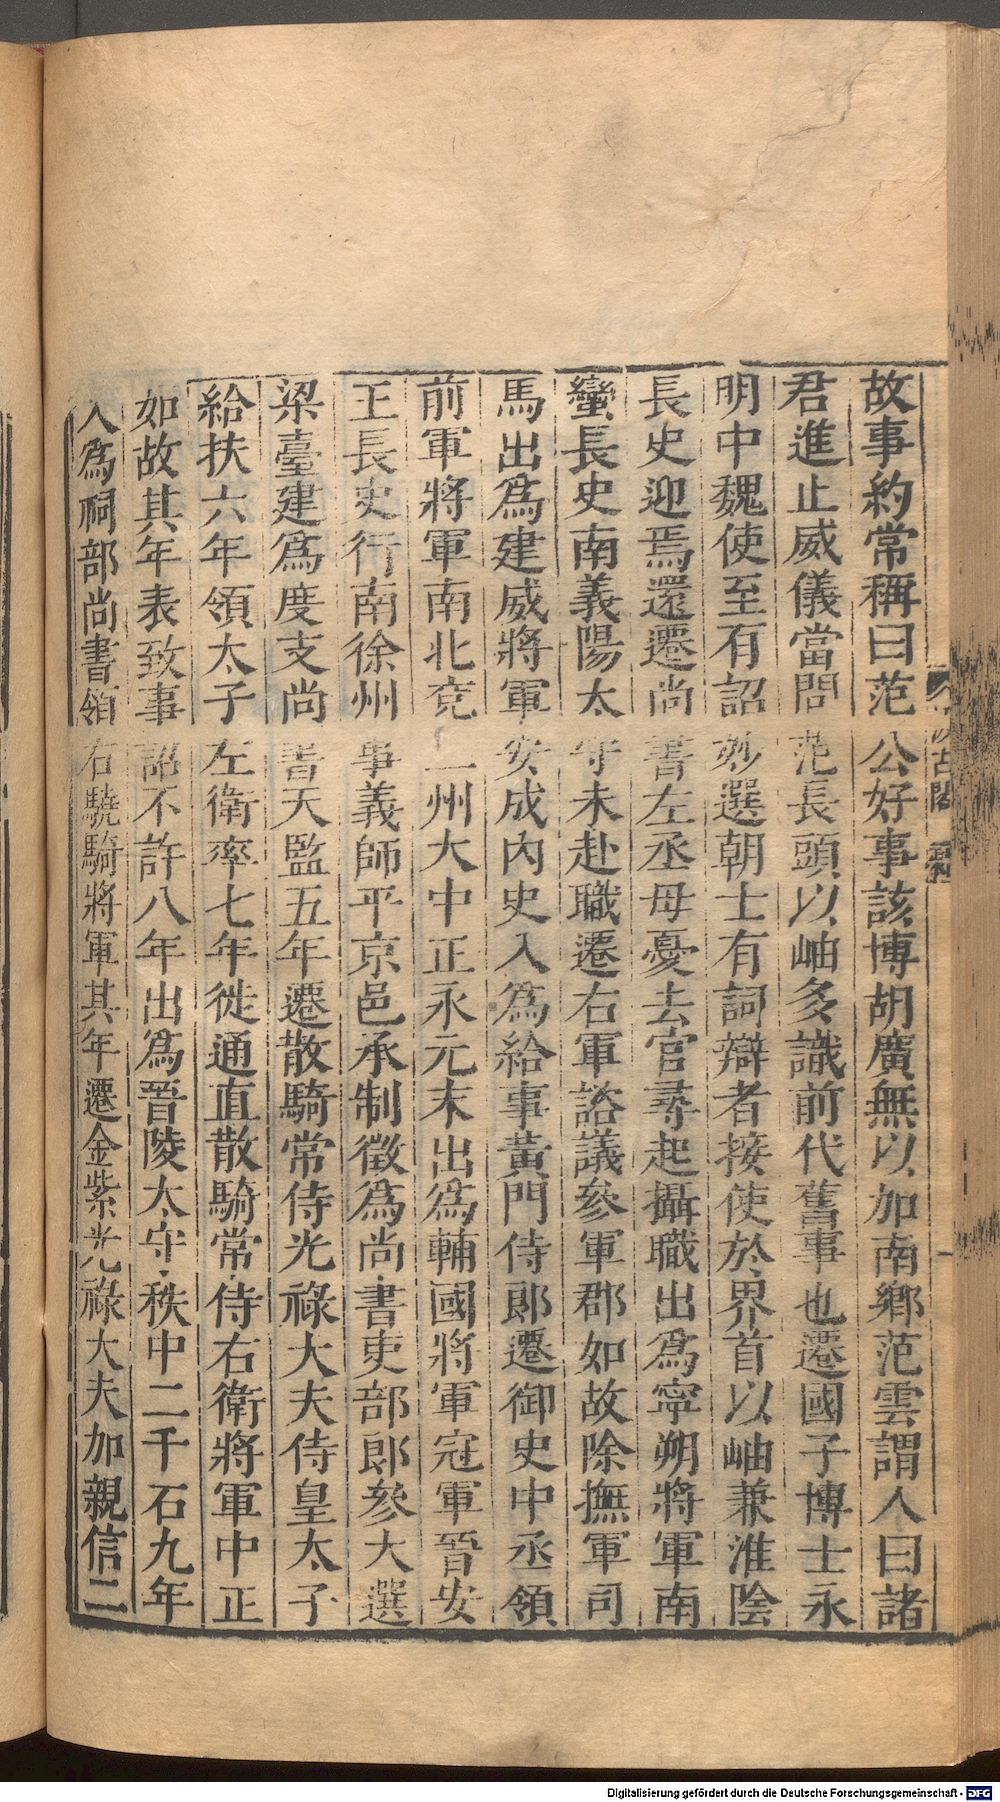 故事約常稱曰范公好事該博胡廣無以加南鄉范雲謂人曰諸
君進止威儀當問范長頭以岫多識前代舊事也遷國子博士永
明中魏使至有詔妙選朝士有詞辯者接使於界首以岫兼淮陰
長史迎焉還遷尚書左丞母憂去官尋起攝職出為寧朔將軍南
蠻長史南義陽太守未赴職遷右軍諮議參軍郡如故除撫軍司
馬出為建威將軍安成內史入為給事黃門侍郎遷御史中丞領
前軍將軍南北兗二州大中正永元末出為輔國將軍冠軍晉安
王長史行南徐州事義師平京邑承制徵為尚書吏部郎參大選
梁臺建為度支尚書天監五年遷散騎常侍光祿大夫侍皇太子
給扶六年領太子左衛率七年徙通直散騎常侍右衛將軍中正
如故其年表致事詔不許八年出為晉陵太守秩中二千石九年
入為祠部尚書領右驍騎將軍其年遷金紫光祿大夫加親信二
Digitalisierung gefördert durch die Deutsche Forschungsgemeinschaft - DFG